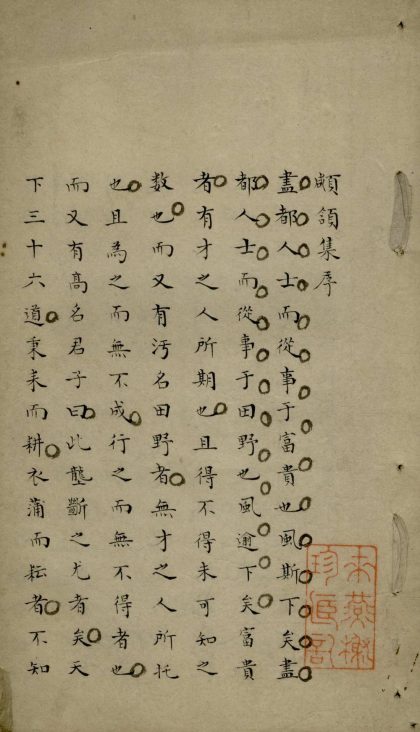 頷集序
盡都人士而從事于富貴也風斯下矣盡
都人士而從事于田野也風邇下矣富貴
者有才之人所期也且得不得未可知之
数也而又有污名田野者無才之人所托
也且為之而無不成行之而無不得者也
而又有高名君子曰此壟斷之尤者矣天
下三十六道秉耒而耕衣蒲而耘者不知